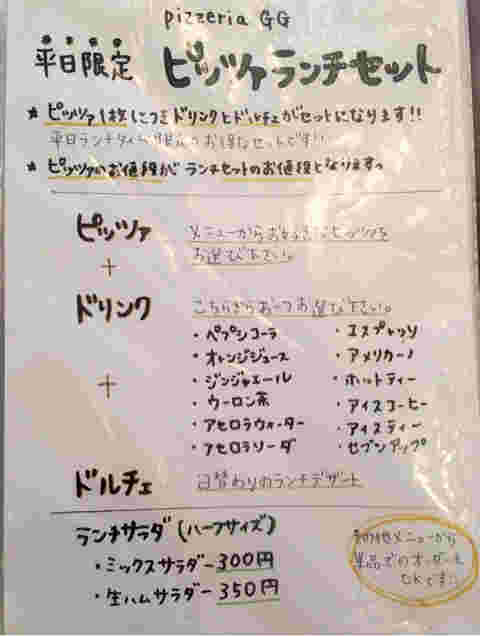 pizzeria GG
平日限定 ピッツァランチセット
★ ピッツァ1枚につきドリンクとドルチェがセットになります!!
平日ランチタイム限定のお得なセットです!!
★ ピッツァのお値段がランチセットのお値段となります。
ピッツァ
メニューからお好きなピッツァを
お選び下さい。
+
ドリンク
こちらからお一つお選び下さい。
・ペプシコーラ
・オレンジジュース
・ジンジャエール
・ウーロン茶
・アセロラウォーター
・アセロラソーダ
・エスプレッソ
・アメリカーノ
・ホットティー
・アイスコーヒー
・アイスティー
・セブンアップ
+
ドルチェ
日替わりのランチデザート
ランチサラダ (ハーフサイズ)
・ミックスサラダー 300円
・生ハムサラダー 350円
その他メニューから
単品でのオーダーも
OKです!!